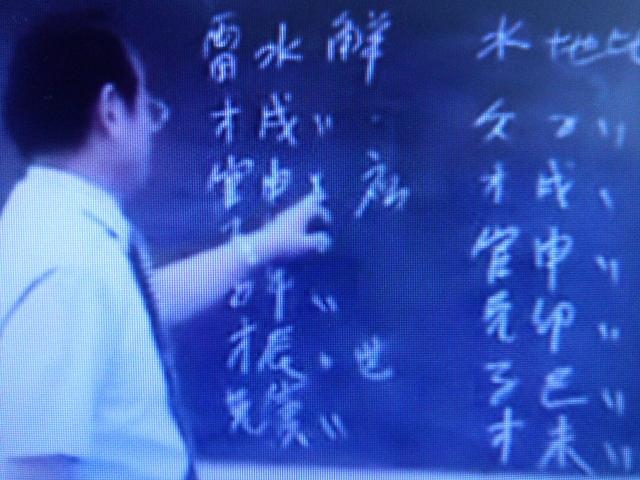 雷水解
才戌〃
官申、应
午〃
才辰、世
兄寅〃
水地比
才戌、
官申〃
兄卯〃
子巳〃
才未〃